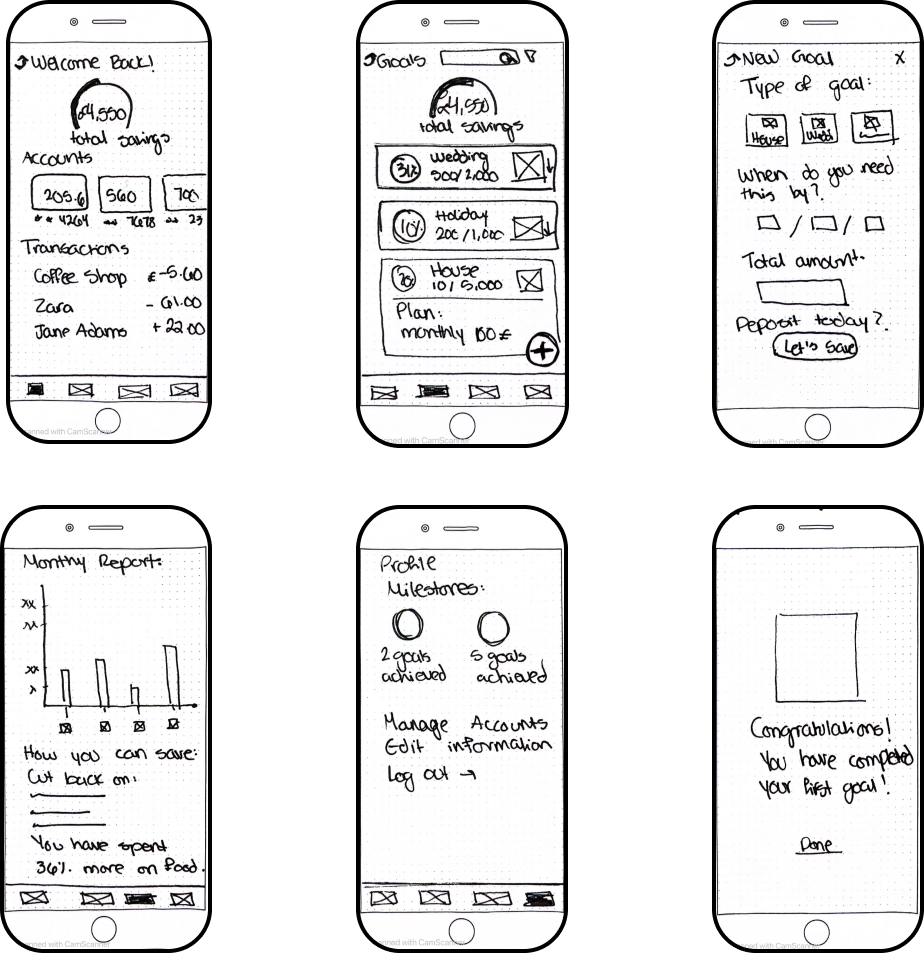 Welcome Back!
24,550
total savings
Accounts
205.6 560 700
** 4264 ** 7678 ** 23
Transactions
Coffee Shop £-5.60
Zara - 61.00
Jane Adams + 22.00
Scanned with CamScanner
Goals
24,550
total savings
Wedding
31%
500/2,000
Holiday
10%
200/1,000
House
10/5,000
Plan:
monthly 150 £
+
nned with CamScanner
New Goal X
Type of goal:
House Wedd
When do you need
this by?
/ /
Total amount:
Deposit today?
Let's Save
nned with CamScanner
Monthly Report:
xx
xx
xx
x
How you can save:
Cut back on:
You have spent
36% more on food.
nned with CamScanner
Profile
Milestones:
2 goals 5 goals
achieved achieved
Manage Accounts
Edit information
Log out →
nned with CamScanner
Congratulations!
You have completed
your first goal!
Done
nned with CamScanner